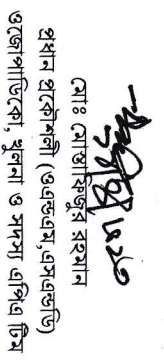 মোঃ মোস্তাফিজুর রহমান
প্রধান প্রকৌশলী (ওএন্ডএম, এসএন্ডডি)
ওজোপাডিকো, খুলনা ও সদস্য এপিএ টিম